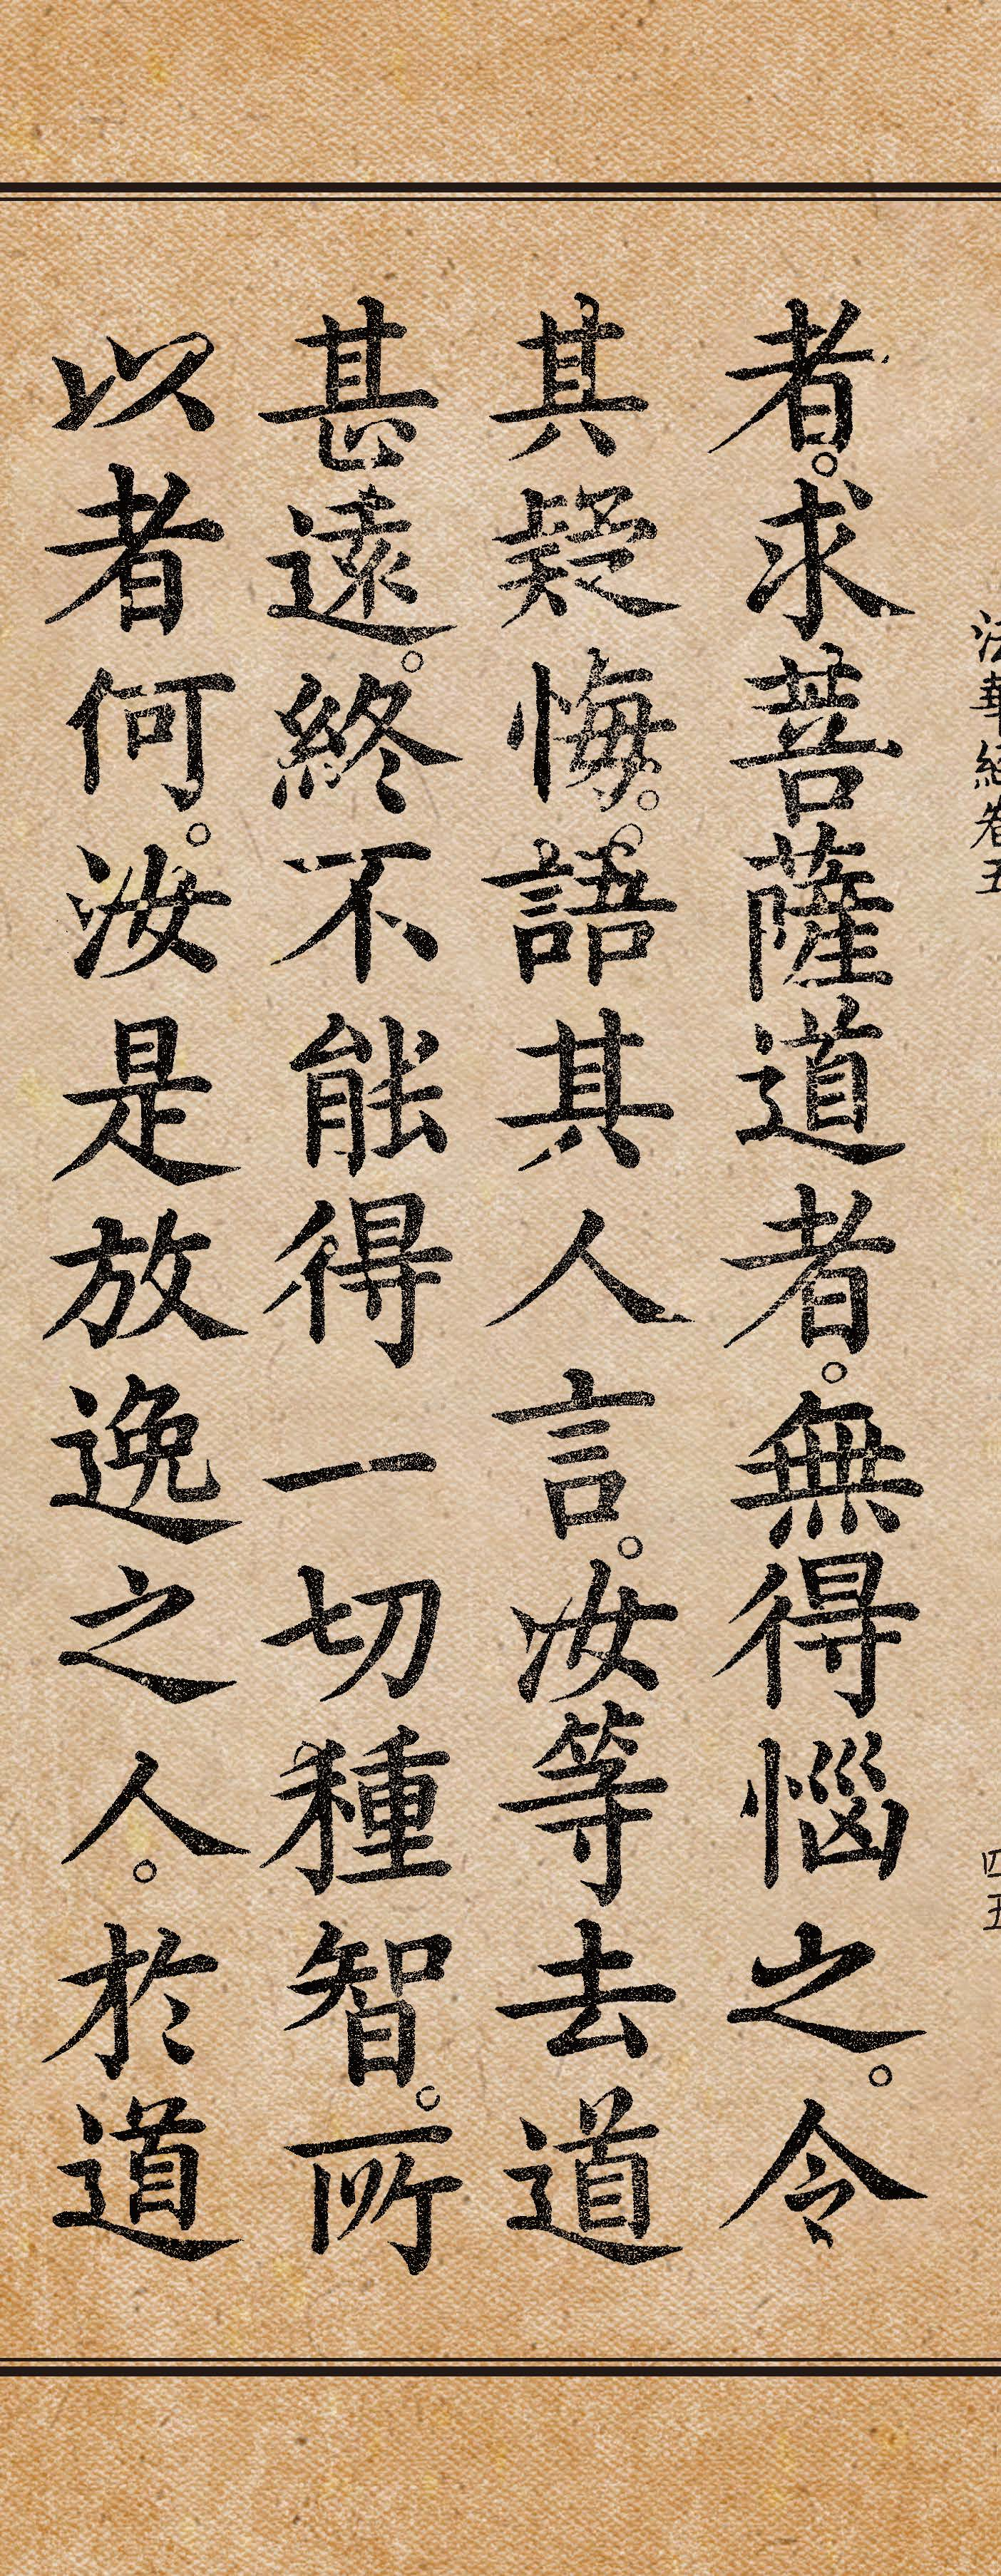 法華經卷五
四五
者。求菩薩道者。無得惱之。令
其疑悔。語其人言。汝等去道
甚遠。終不能得一切種智。所
以者何。汝是放逸之人。於道